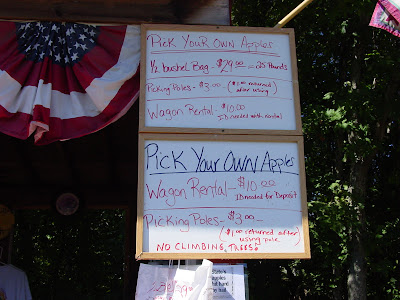 Pick Your Own Apples
1/2 bushel Bag - $29.00 - 25 Pounds
Picking Poles - $3.00 ($1.00 returned
after using)
Wagon Rental - $10.00
ID needed with rental
Pick Your Own Apples
Wagon Rental - $10.00
ID needed for Deposit
Picking Poles - $3.00 -
($1.00 returned after
using pole.)
NO CLIMBING TREES!